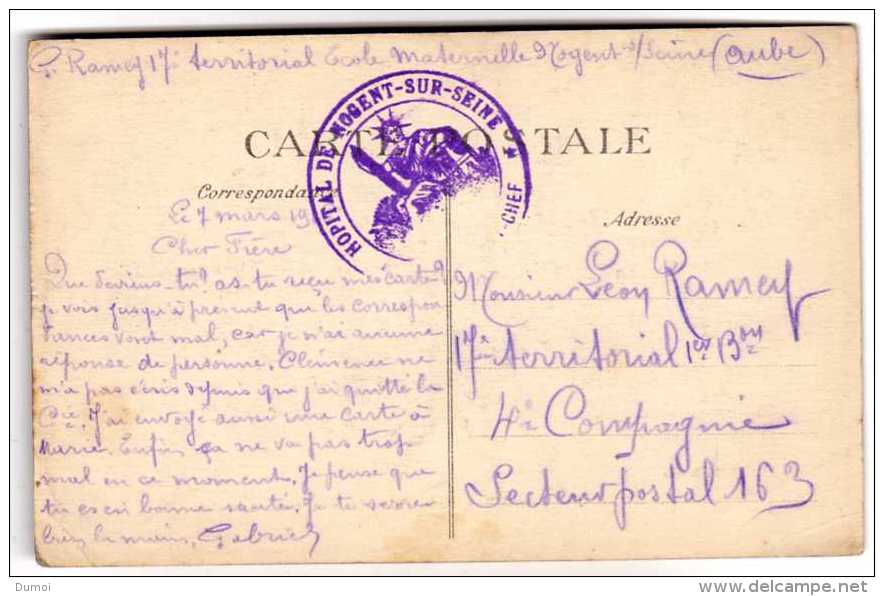 G. Ramey 17e territorial Ecole Maternelle Nogent s/Seine (Aube)
HOPITAL DE NOGENT-SUR-SEINE ★
CHEF
CARTE POSTALE
Correspondance
Le 7 mars 19
Cher Frère
Que deviens-tu? as-tu reçu mes cartes?
je vois jusqu'à présent que les correspon
dances vont mal, car je n'ai aucune
réponse de personne. Clémence ne
m'a pas écris depuis que j'ai quitté la
Cie. J'ai envoyé aussi une carte à
Marie. Enfin ça ne va pas trop
mal en ce moment. Je pense que
tu es en bonne santé. Je te serre
bien la main, Gabriel
Adresse
Monsieur Léon Ramey
17e territorial 1er Bon
4e Compagnie
Secteur postal 163
Dumoi
www.delcampe.net